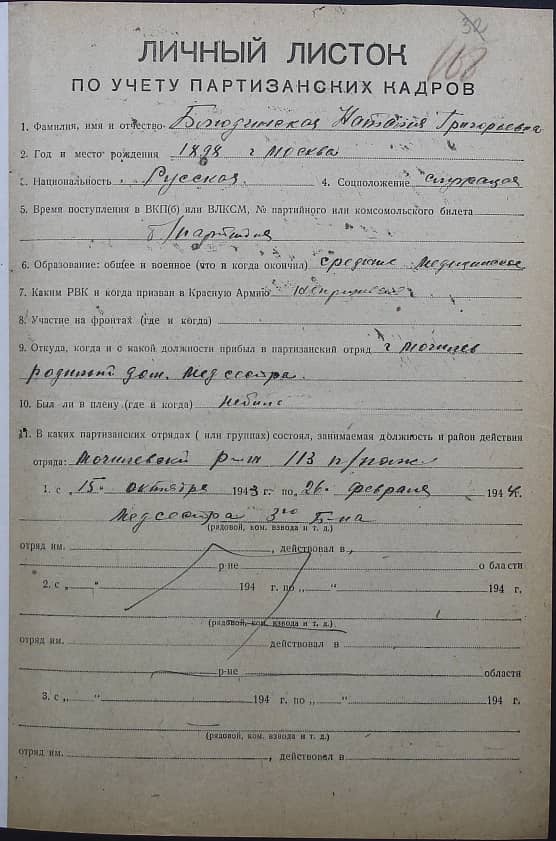 32
168
ЛИЧНЫЙ ЛИСТОК
ПО УЧЕТУ ПАРТИЗАНСКИХ КАДРОВ
1. Фамилия, имя и отчество Григорьевна
2. Год и место рождения 1898 г Москва
3. Национальность Русская 4. Соцположение служащая
5. Время поступления в ВКП(б) или ВЛКСМ, № партийного или комсомольского билета
б/партийная
6. Образование: общее и военное (что и когда окончил) среднее медицинское
7. Каким РВК и когда призван в Красную Армию
8. Участие на фронтах (где и когда)
9. Откуда, когда и с какой должности прибыл в партизанский отряд г Могилев
родиный дом. Медсестра.
10. Был ли в плену (где и когда) небыла
11. В каких партизанских отрядах ( или группах) состоял, занимаемая должность и район действия
отряда: Могилевский р-н 113 п/полк
1. с „15“ октября 1943 г. по „26“ февраля 1944 г.
Медсестра 3го Б-на
(рядовой, ком. взвода и т. д.)
отряд им. , действовал в
р-не о бласти
2. с „ “ 194 г. по „ “ 194 г.
(рядовой, ком. взвода и т. д.)
отряд им. действовал в
р-не области
3. с „ “ 194 г. по „ “ 194 г.
(рядовой, ком. взвода и т. д.)
отряд им. , действовал в